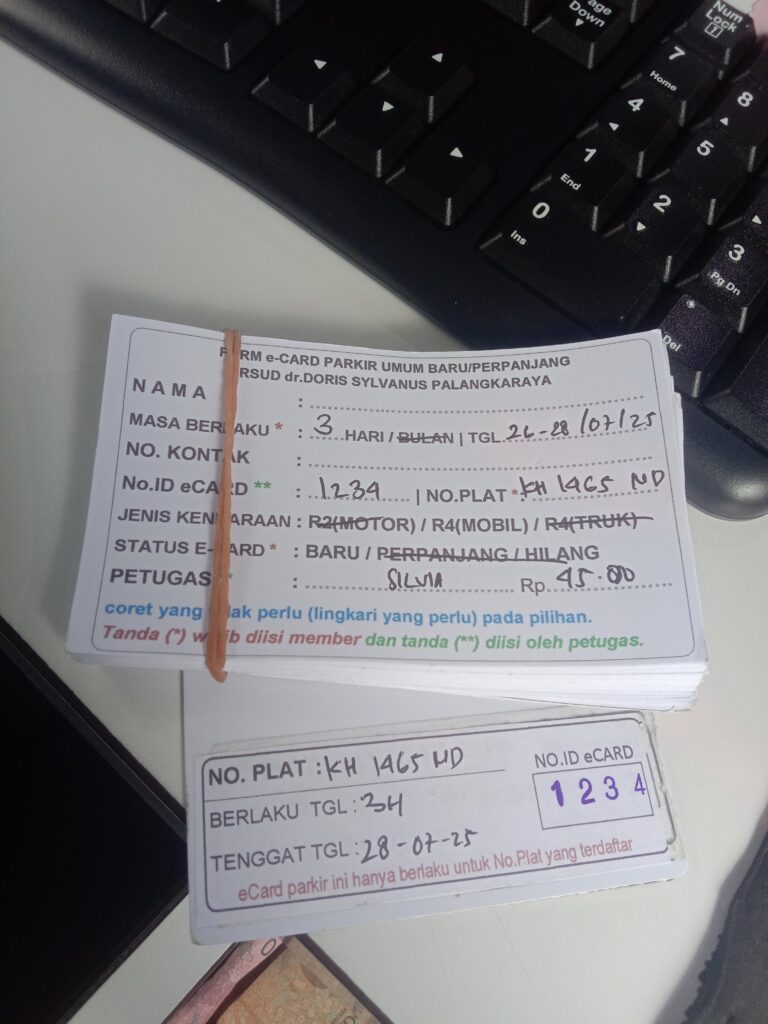 Page
Down
Num
Lock
7
Home
8
4
5
1
End
2
0
Ins
3
Pg Dn
Del
FORM e-CARD PARKIR UMUM BARU/PERPANJANG
RSUD dr.DORIS SYLVANUS PALANGKARAYA
NAMA :
MASA BERLAKU * : 3 HARI / BULAN | TGL. 26-28/07/25
NO. KONTAK :
No.ID eCARD ** : 1234 | NO.PLAT *: KH 1465 ND
JENIS KENDARAAN : R2(MOTOR) / R4(MOBIL) / R4(TRUK)
STATUS E-CARD * : BARU / PERPANJANG / HILANG
PETUGAS ** : SILVIA Rp. 45.00
coret yang tidak perlu (lingkari yang perlu) pada pilihan.
Tanda (*) wajib diisi member dan tanda (**) diisi oleh petugas.
NO. PLAT : KH 1465 ND
NO.ID eCARD
1234
BERLAKU TGL : 3H
TENGGAT TGL : 28-07-25
eCard parkir ini hanya berlaku untuk No.Plat yang terdaftar